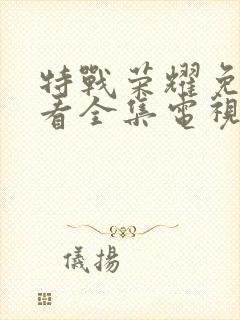 特戰榮耀免
看全集電視
儀揚